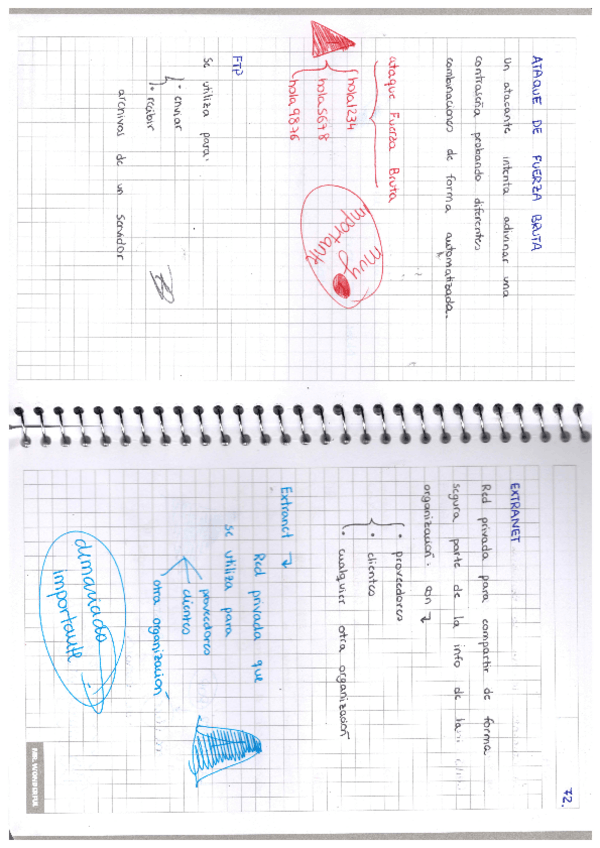 ATAQUE DE FUERZA BRUTA
Un atacante intenta adivinar una
contraseña probando diferentes
combinaciones de forma automatizada.
ataque Fuerza Bruta
hola1234
hola5678
hola9876
muy
importante
FTP
Se utiliza para:
• enviar
• recibir
archivos de un servidor
72.
EXTRANET
Red privada para compartir de forma
segura parte de la info de la
organización. con
• proveedores
• clientes
• cualquier otra organización
Extranet →
Red privada que
se utiliza para
proveedores
clientes
otra organización
demasiado
importante
MR. WONDERFUL